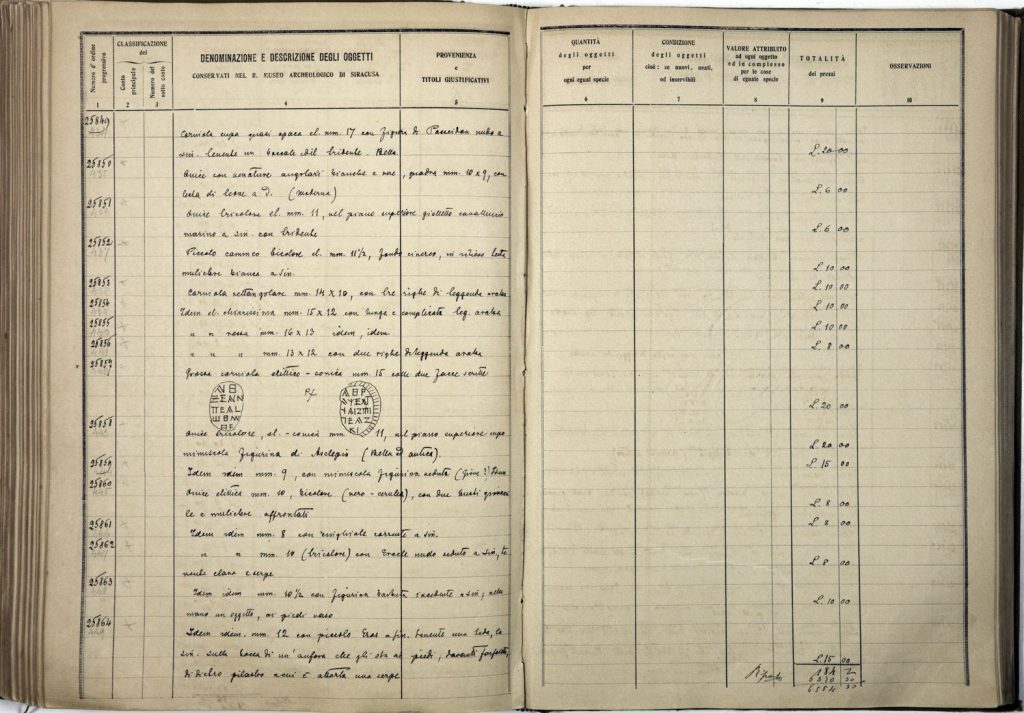 Numero d'ordine progressivo
CLASSIFICAZIONE del
Conto principale
Numero del sotto conto
DENOMINAZIONE E DESCRIZIONE DEGLI OGGETTI
CONSERVATI NEL R. MUSEO ARCHEOLOGICO DI SIRACUSA
PROVENIENZA
e
TITOLI GIUSTIFICATIVI
1 2 3 4 5
25849
Corniola cupa quasi opaca el. mm. 17 con figura di Poseidon nudo a
sin. tenente un tridente. Bella.
25850
Onice con venature angolari bianche e nere, quadra mm. 10 x 9, con
testa di leone a d. (moderna)
25851
Onice tricolore el. mm. 11, nel piano superiore cavalluccio
marino a sin. con tridente
25852
Piccolo cammeo bicolore el. mm. 11½, fondo cinereo, in rilievo testa
muliebre bianca a sin.
25853
Corniola rettangolare mm. 14 x 10, con tre righe di leggenda araba
25854
Idem el. chiarissima mm. 15 x 12 con lunga e complicata leg. araba
25855
" " rossa mm. 16 x 13 idem, idem
25856
" " " mm. 13 x 12 con due righe di leggenda araba
25857
Grossa corniola ellittico-conica mm. 15 colle due facce scritte
25858
Onice tricolore, el.-conica mm. 11, nel piano superiore cupo
minuscola figurina di Asclepio (Bella ed antica).
25859
Idem idem mm. 9, con minuscola figurina seduta (Giove?) Idem
25860
Onice ellittica mm. 10, bicolore (nero-cerulea), con due busti
le e muliebre affrontati
25861
Idem idem mm. 8 con corrente a sin.
25862
" " mm. 10 (tricolore) con Eracle nudo seduto a sin, te
nente clava e serpe
25863
Idem idem mm. 10½ con figurina barbuta incedente a sin; nelle
mano un oggetto, ai piedi vaso
25864
Idem idem. mm. 12 con piccolo Eros a sin. tenente una, la
sin. sulla bocca di un'anfora che gli sta ai piedi, davanti farfalla,
di dietro pilastro a cui è una serpe
QUANTITÀ
degli oggetti
per
ogni egual specie
CONDIZIONE
degli oggetti
cioè: se nuovi, usati,
od inservibili
VALORE ATTRIBUITO
ad ogni oggetto
ed in complesso
per le cose
di eguale specie
TOTALITÀ
dei prezzi
OSSERVAZIONI
6 7 8 9 10
L. 20 00
L. 6 00
L. 6 00
L. 10 00
L. 10 00
L. 10 00
L. 10 00
L. 8 00
L. 20 00
L. 20 00
L. 15 00
L. 8 00
L. 8 00
L. 8 00
L. 10 00
L. 15 00
Riporto